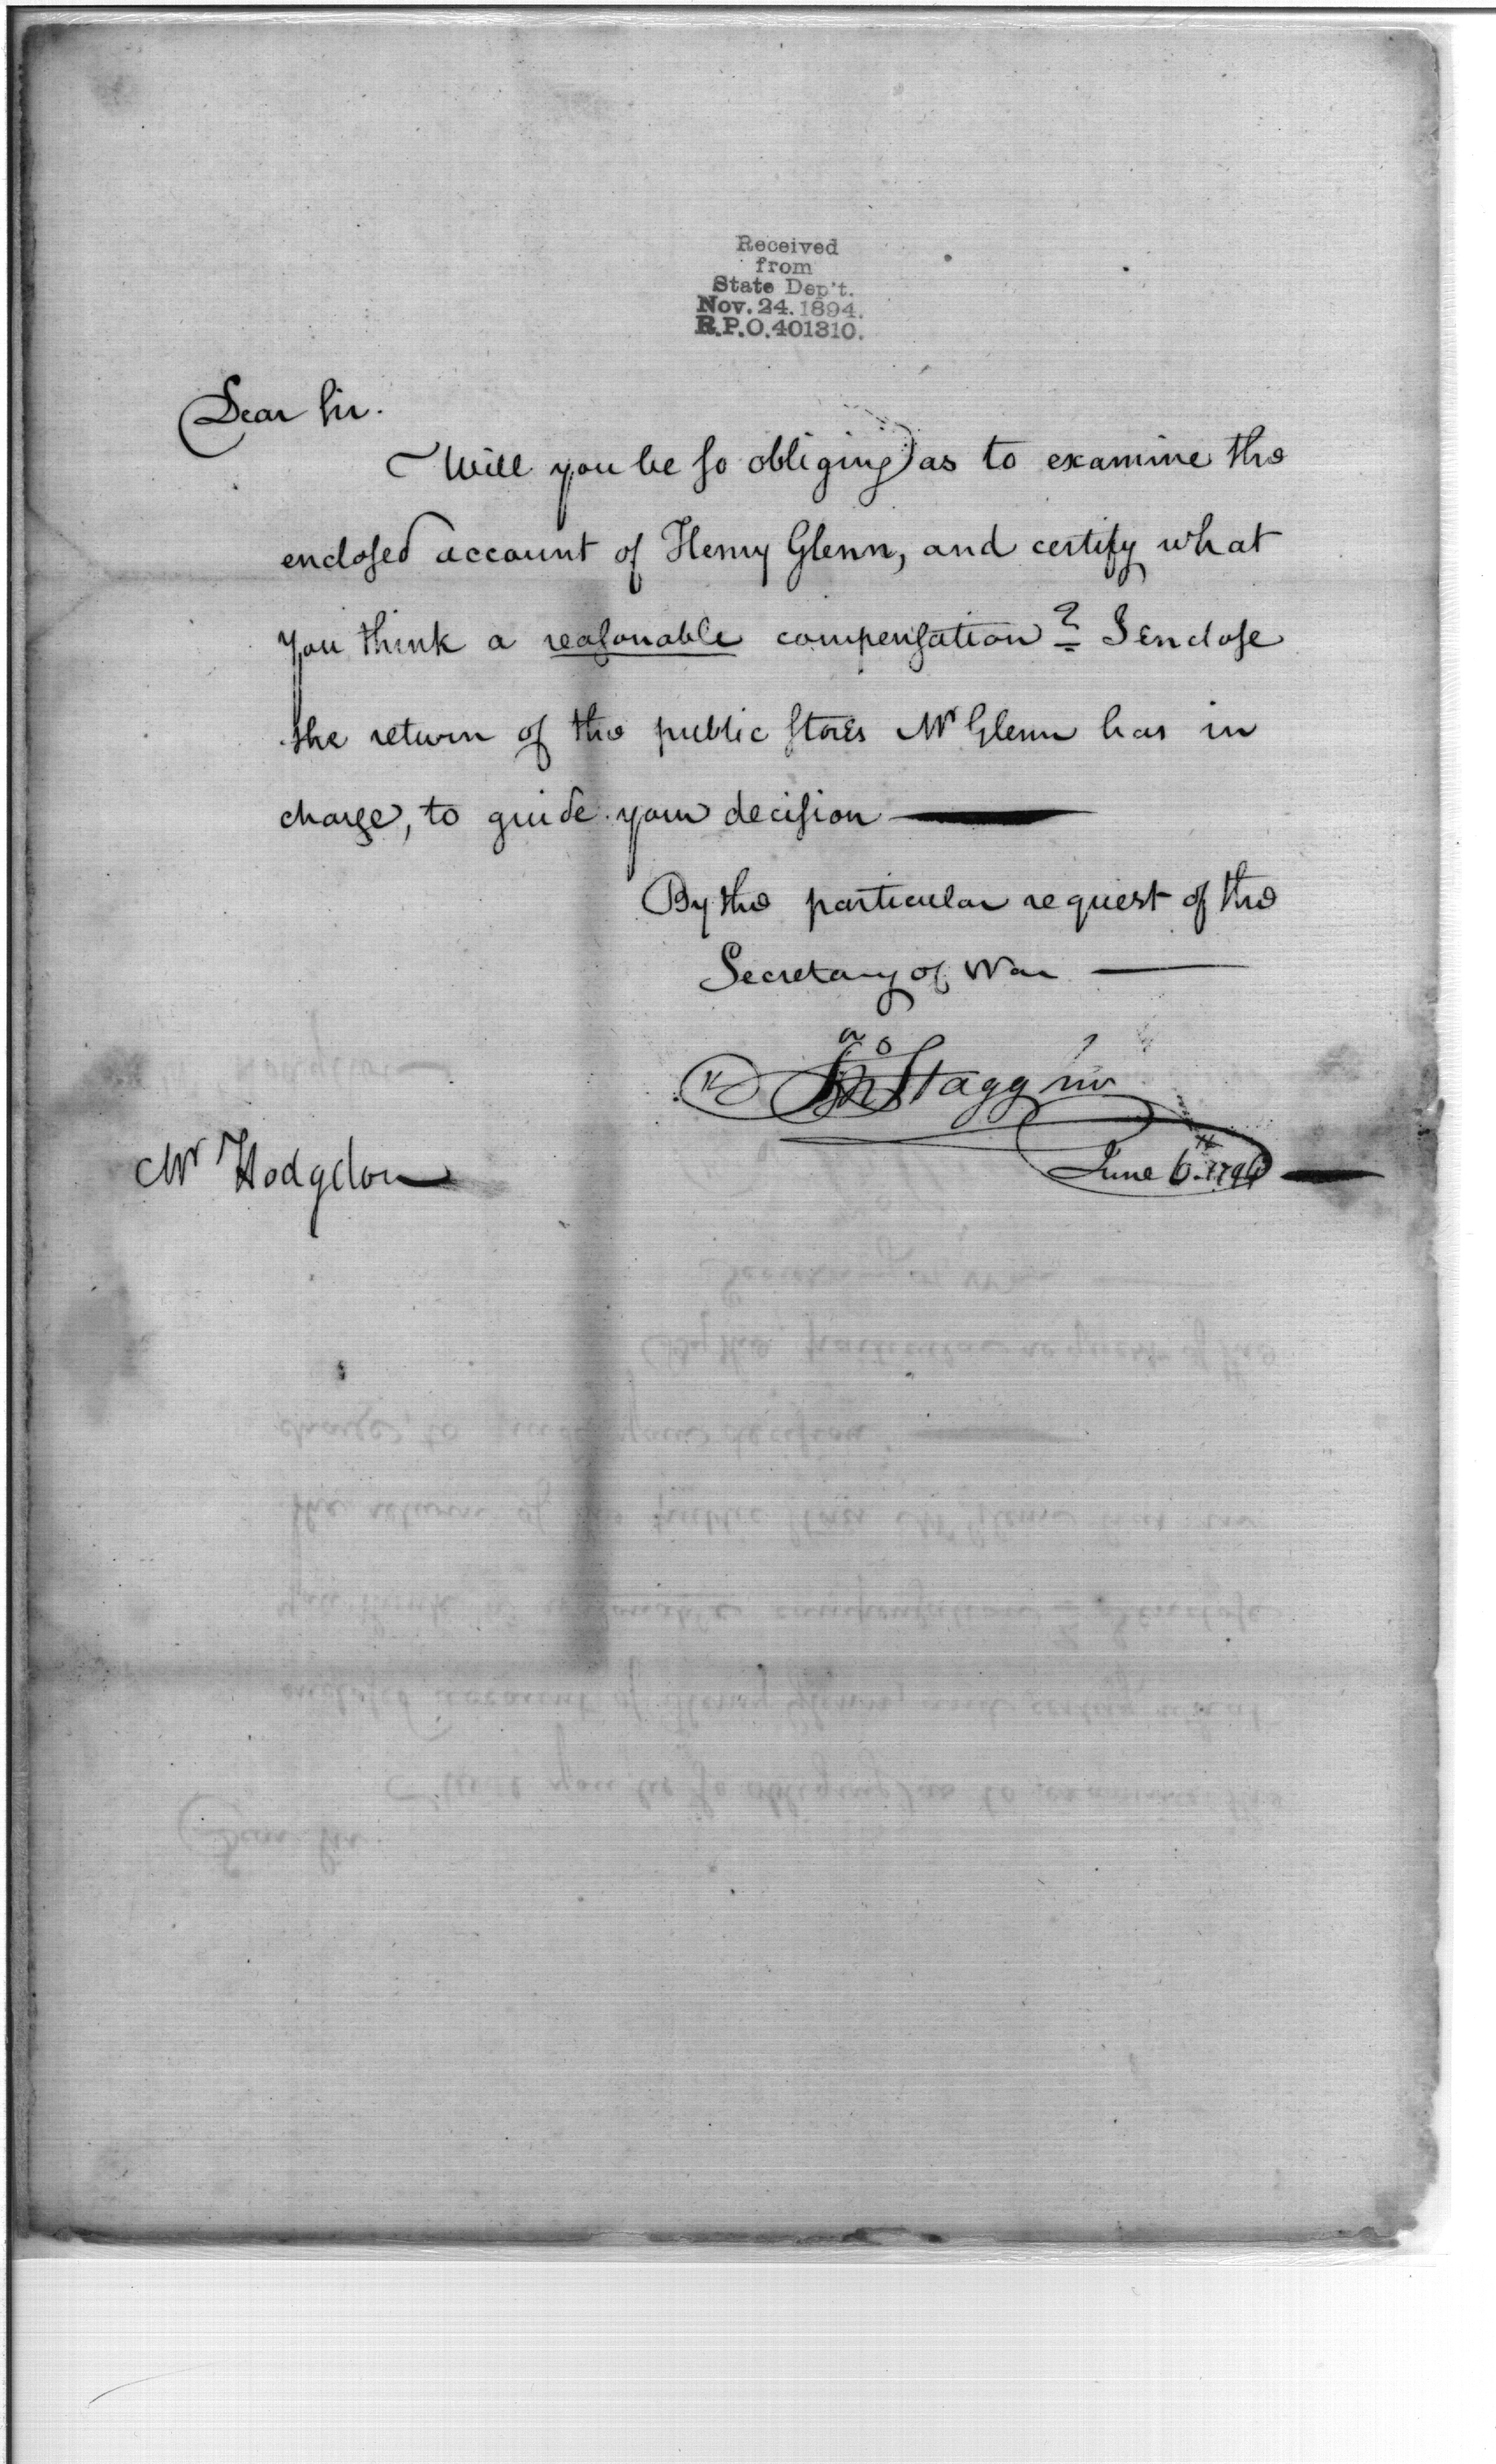 Received
from
State Dep't.
Nov. 24. 1894.
R.P.O. 401310.
Dear Sir.
Will you be so obliging as to examine the
enclosed account of Henry Glenn, and certify what
you think a reasonable compensation? I enclose
the return of the public stores Mr Glenn has in
charge, to guide your decision —
By the particular request of the
Secretary of War —
Jno Stagg Jnr
Mr Hodgdon
June 6th